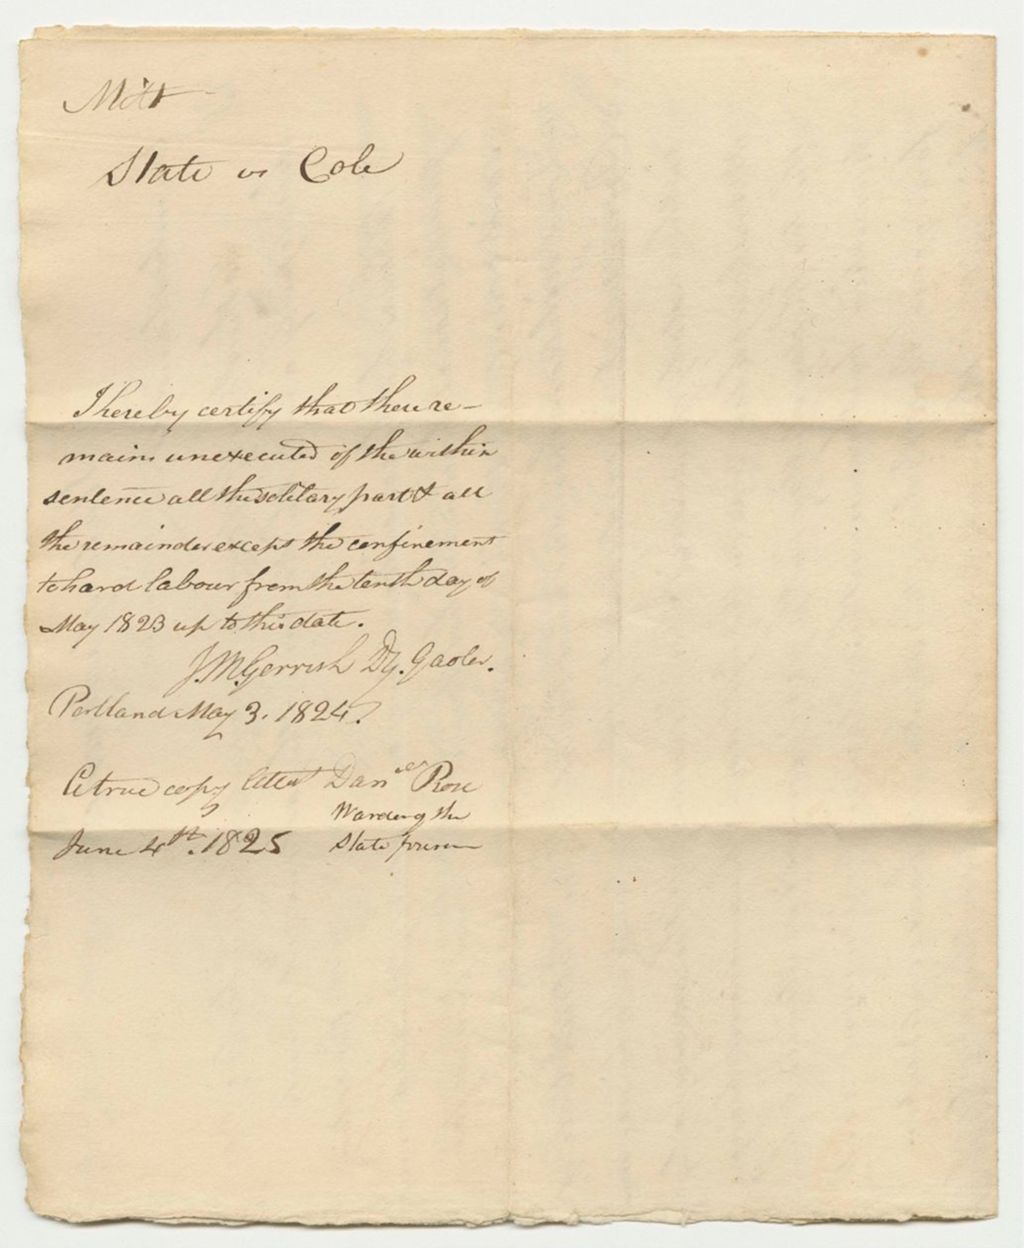 Mitt
State vs Cole
I hereby certify that there re-
mains unexecuted of the within
sentence all the solitary part & all
the remainder except the confinement
to hard labour from the tenth day of
May 1823 up to this date.
J. M. Gerrish Dy. Gaoler.
Portland May 3. 1824.
A true copy Attest Danel Rose
Warden of the
June 4th. 1825 State prison